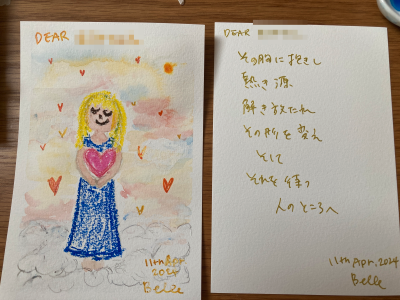 DEAR
11th Apr.
2024
Belle
DEAR
その胸に抱きし
熱き源
解き放たれ
その所を変え
そして
それを待つ
人のところへ
11th Apr. 2024
Belle